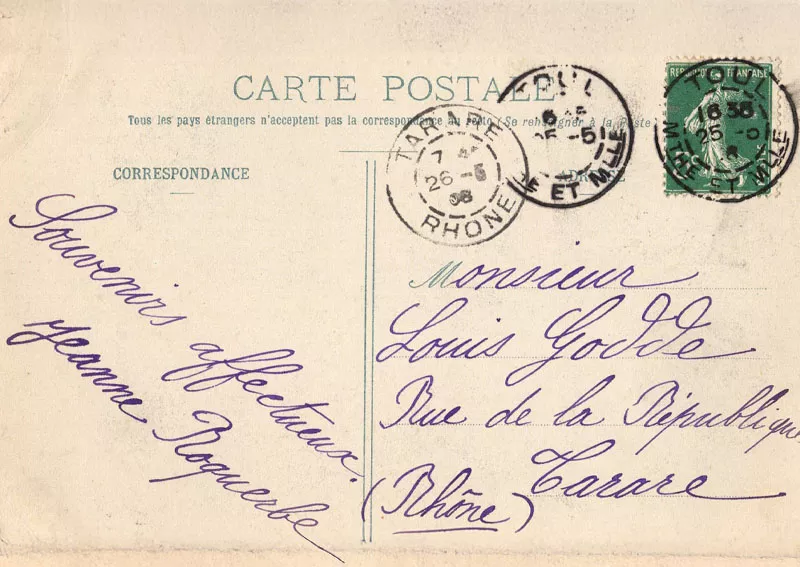 CARTE POSTALE
Tous les pays étrangers n'acceptent pas la correspondance au recto (Se renseigner à la Poste)
CORRESPONDANCE
ADRESSE
Souvenirs affectueux.
Jeanne Roquerbe
Monsieur
Louis Godde
Rue de la République
Tarare
(Rhône)
TARARE
7
26 -5
08
RHONE
TOUL
25 -5
ET MLLE
REPUBLIQUE FRANÇAISE
TOUL
18
25 -5
8
MTHE ET MLLE